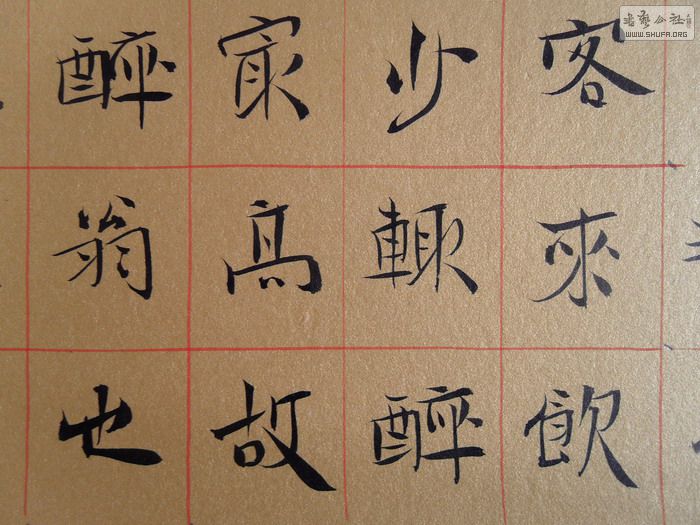 客來飲
少輒醉
㝡高故
醉翁也
書藝公社
WWW.SHUFA.ORG